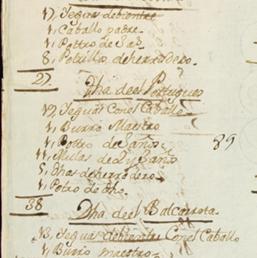 17, Yeguas de bientre
1, Caballo padre.
1, Pottro de 3 as.
8, Potrillos de herradero.
27.
Dha de el Portugues
17, Yeguas Con el Caballo
1, Burro Maestro
1, Pottro de años
Mulas de 2 y 3 años
5, Dhas de herradero
1, Potro de dho.
89
38
Dha de el Balcarrota.
13, Yeguas de bientre Con el Caballo
1, Burro maestro